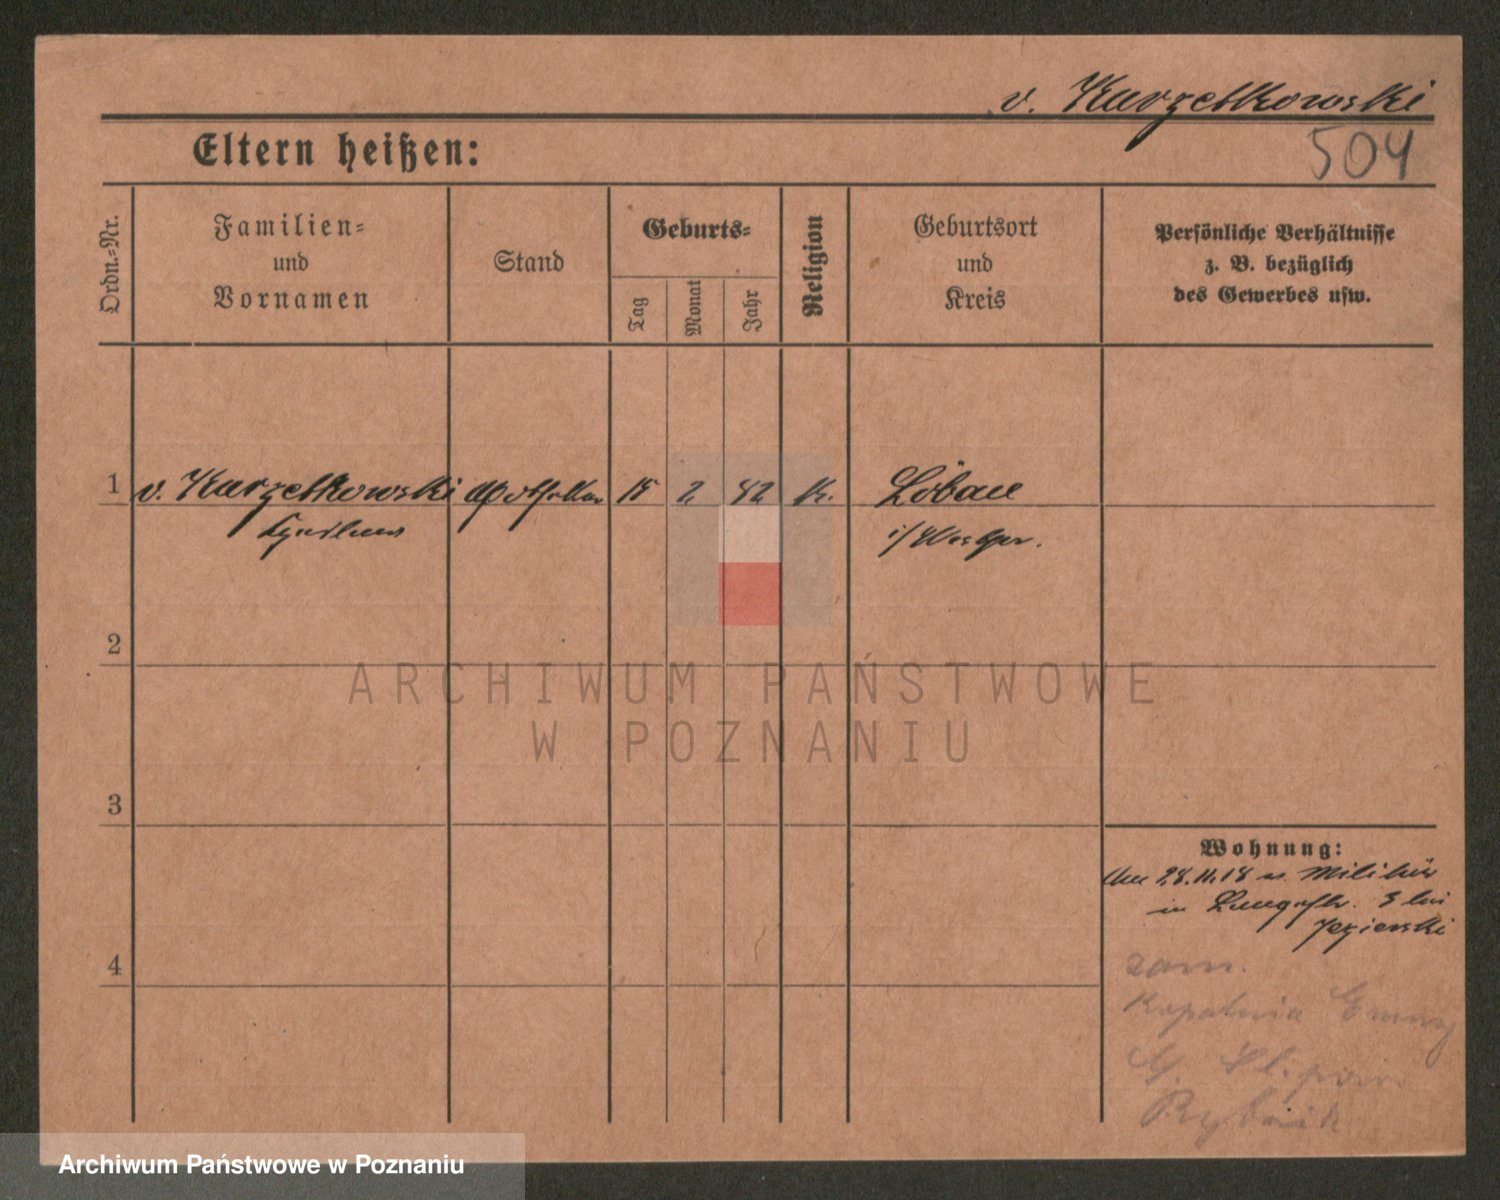 v. Kurzetkowski
504
Eltern heißen:
Ordn.-Nr.
Familien- und Vornamen
Stand
Geburts-
Tag
Monat
Jahr
Religion
Geburtsort und Kreis
Persönliche Verhältnisse
z. B. bezüglich
des Gewerbes usw.
1 v. Kurzetkowski Apotheker 15 2 82 k. Löbau
i/Westpr.
2
3
4
Wohnung:
28.11.18 v. Militär
in 3 bei
Jezierski
zam.
Kopalnia
Rybnik
ARCHIWUM PAŃSTWOWE
W POZNANIU
Archiwum Państwowe w Poznaniu